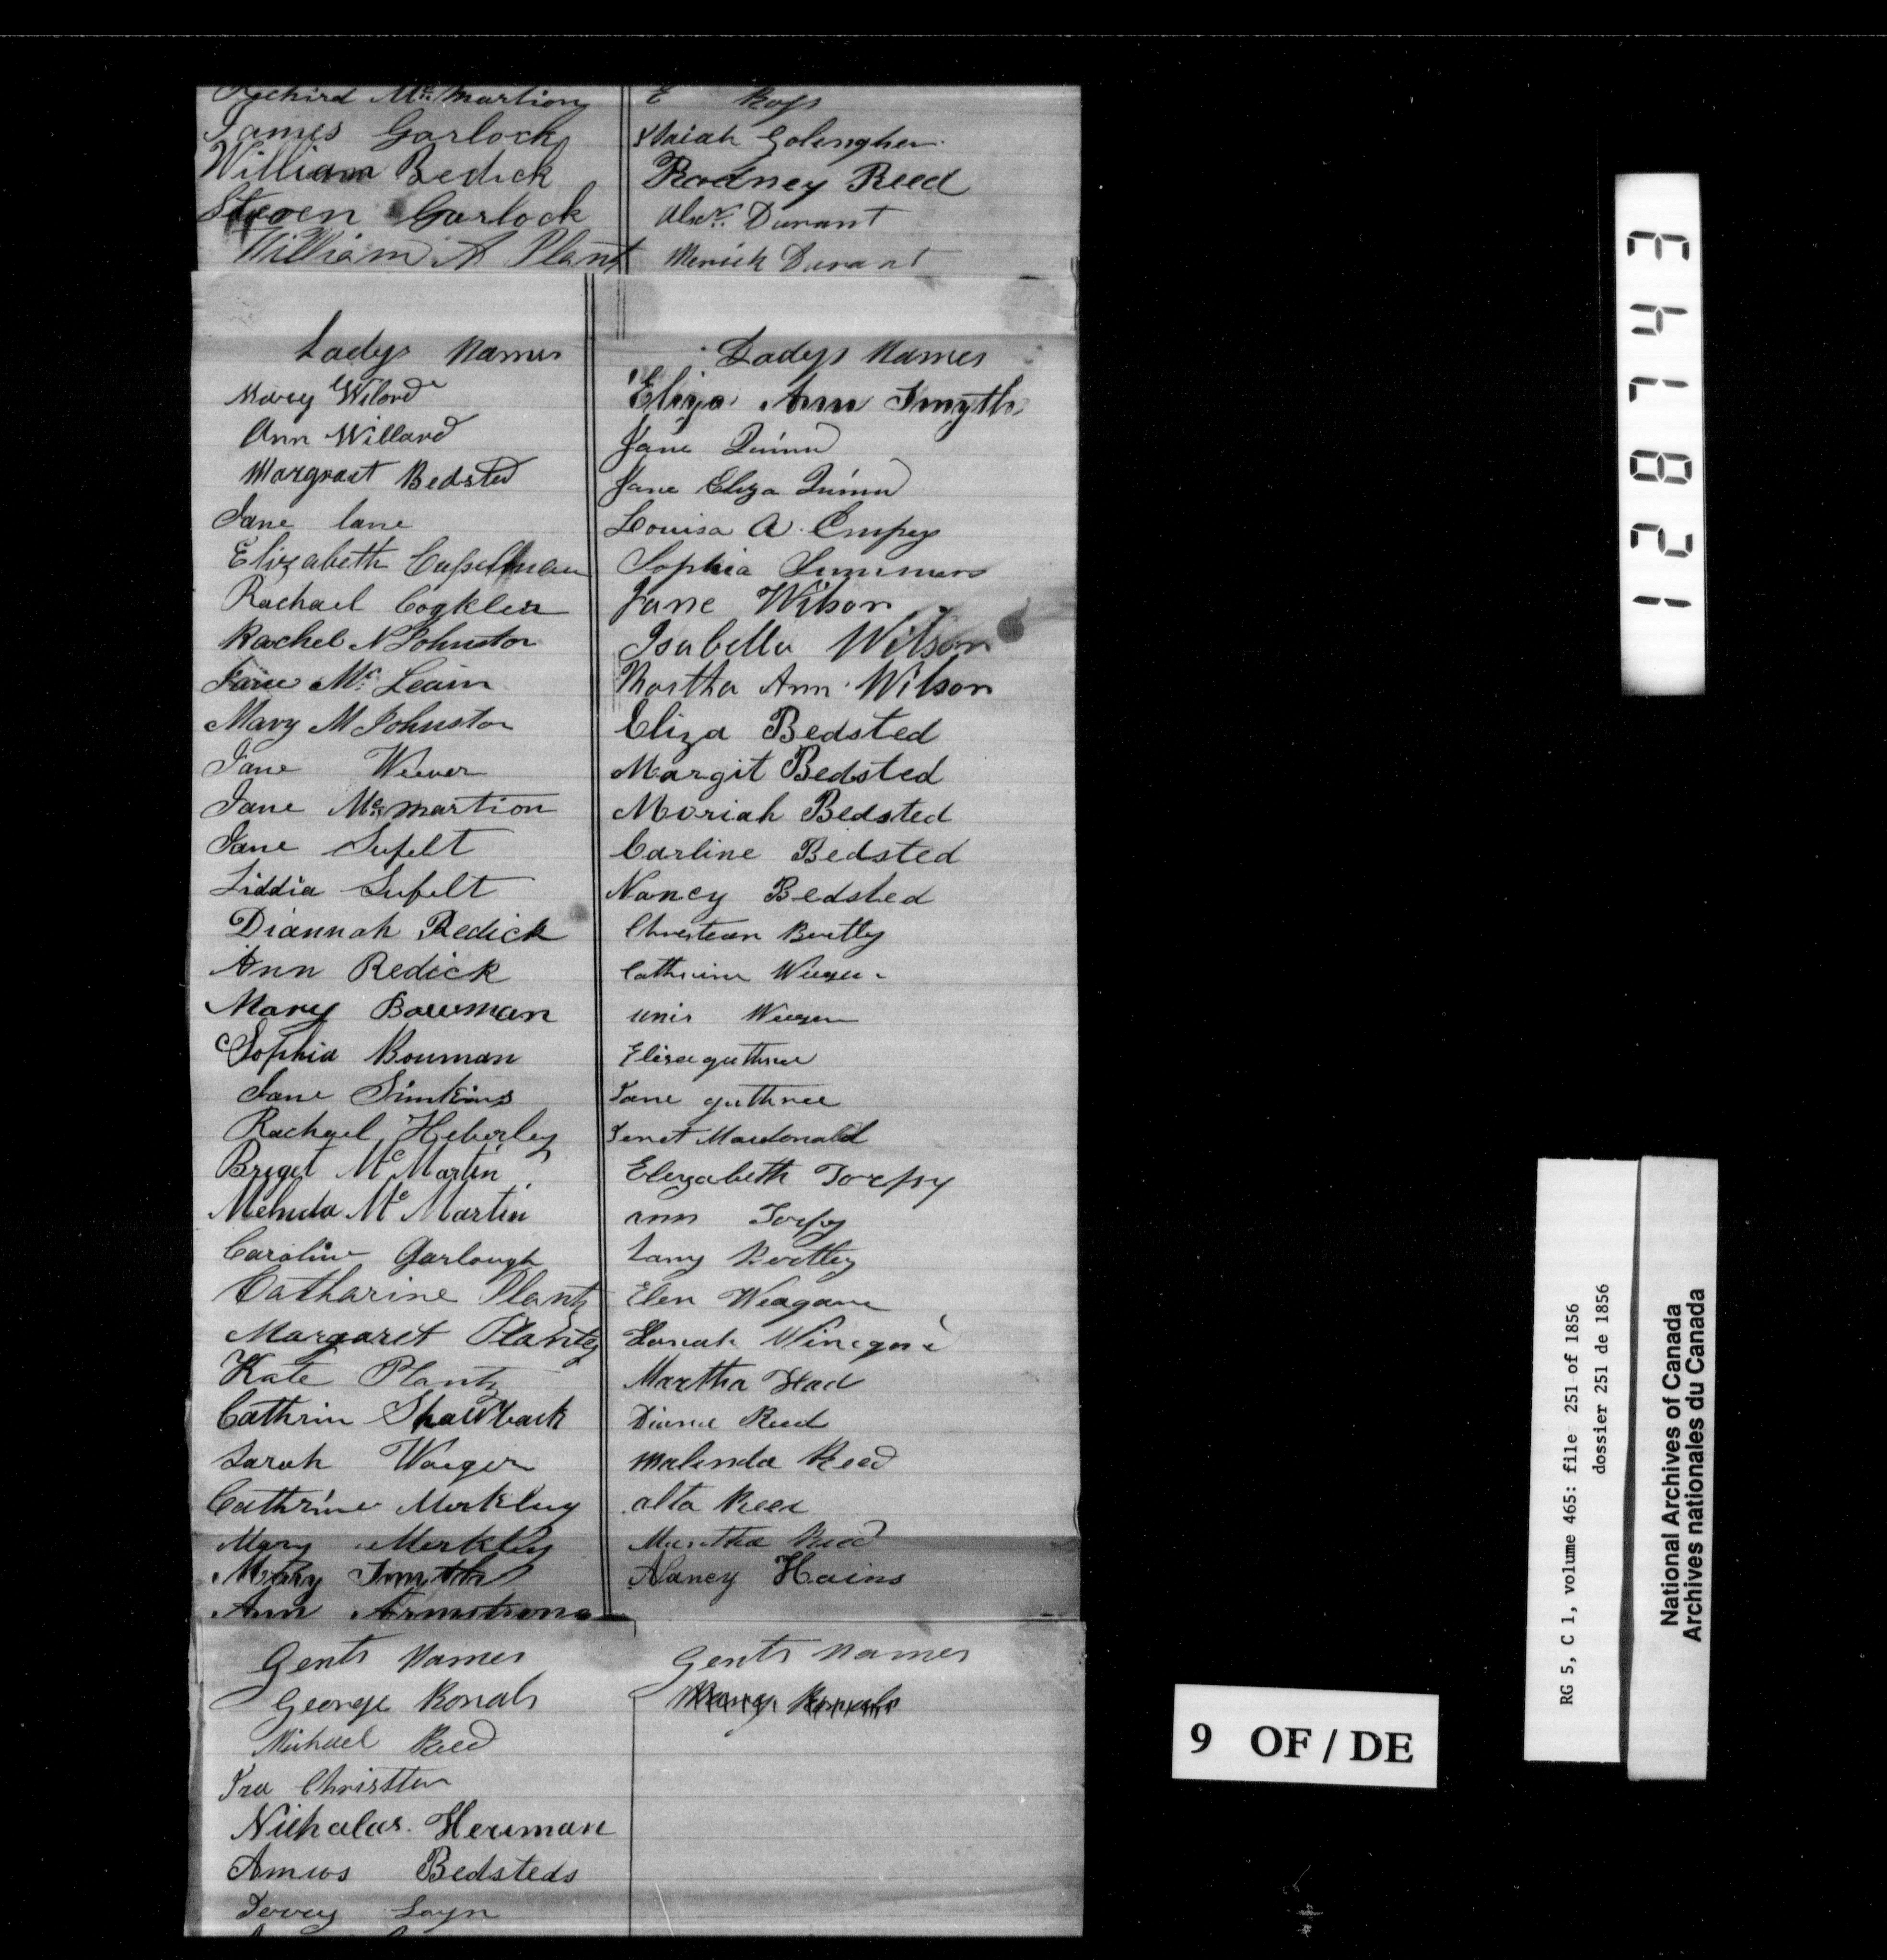 Richird Mc Martion
James Garlock
William Redick
Steven Garlock
William A Plant
E Ross
Isaiah Golengher
Rodney Reed
Alexr. Durant
Merick Durant
Ladys Names
Marey Wilard
Ann Willard
Margraet Bedsted
Jane lane
Elizabeth Casselman
Rachael Cogkler
Rachel N Johnston
Jane Mc Leain
Mary M Johnston
Jane Weever
Jane Mc martion
Jane Sufelt
Liddia Sufelt
Diannah Redick
Ann Redick
Mary Bowman
Sophia Bouman
Jane Simkins
Rachael Heberley
Briget Mc Martin
Melinda Mc Martin
Caroline Garlough
Catharine Plantz
Margaret Plantz
Kate Plantz
Cathrin Shawback
Sarah Waeger
Cathrine Merkley
Mary Merkley
Mary Smyth
Ann Armstrong
Ladys Names
Eliza Ann Smyth
Jane Quinn
Jane Eliza Quinn
Louisa A. Empey
Sophia Summers
Jane Wilson
Isabella Wilson
Martha Ann Wilson
Eliza Bedsted
Margit Bedsted
Moriah Bedsted
Carline Bedsted
Nancy Bedsted
Christean
Catherine
unis
Elisa guthree
Jane guthree
Jenet Macdonald
Elezabeth Torpy
ann Torpy
Lany
Elen Weagant
Hanah
Martha
Diana Reed
Malenda Reed
alta Reed
Martha Reed
Nancy Hains
Gents Names
George Ronals
Michael Reed
Ira Christten
Nicholas Herriman
Amios Bedsteds
Layn
Gents names
National Archives of Canada
Archives nationales du Canada
RG 5, C 1, volume 465: file 251 of 1856
dossier 251 de 1856
9 OF / DE
1 2 8 1 4 3